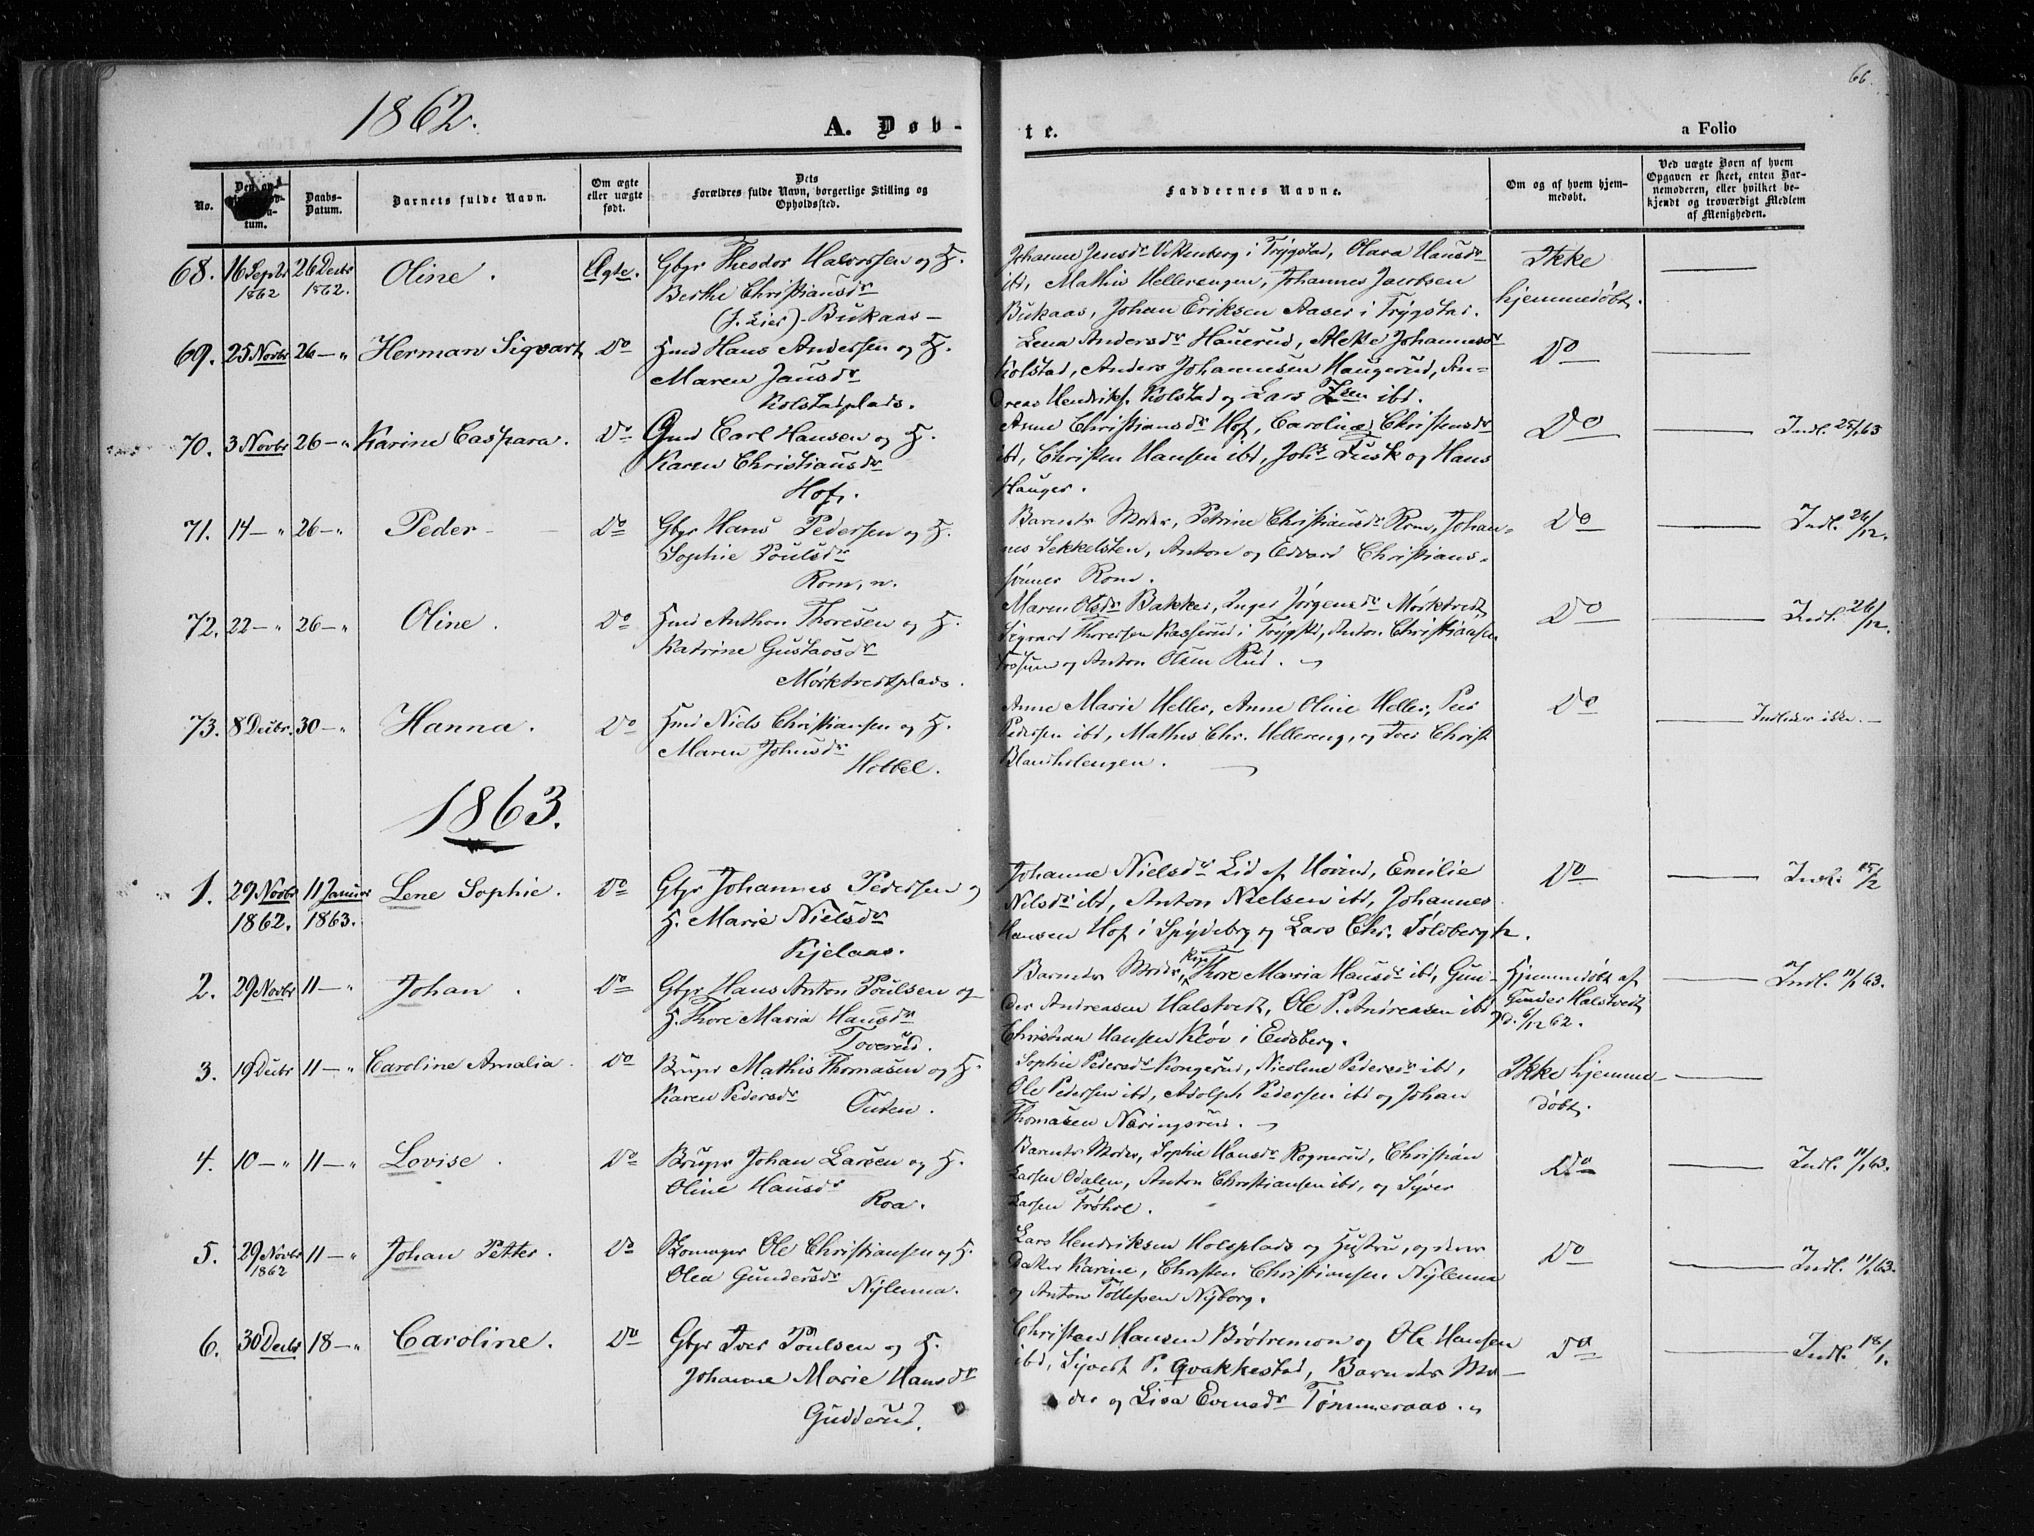 66.
1862.
A. Døb-
te.
a Folio
No.
Daabs-
Datum.
Barnets fulde Navn.
Om ægte
eller uægte
født.
Dets
Forældres fulde Navn, borgerlige Stilling og
Opholdssted.
Faddernes Navne.
Om og af hvem hjem-
medøbt.
Ved uægte Børn af hvem
Opgaven er skeet, enten Bar-
nemoderen, eller hvilket be-
kjendt og troværdigt Medlem
af Menigheden.
68. 16 Septbr 1862 26 Decbr 1862. Oline. Ægte. Gbgr Theodor Halvorsen og H.
Berthe Christiansdr
(f. Lier) - Bukaas -
Johanne Jensdr Vikenberg i Trygstad, Olava Hansdr
ibd, Mathis Hellerengen, Johannes Jacobsen
Bukaas, Johan Eriksen Aaser i Trygstad.
Ikke
hjemmedøbt.
69. 25 Novbr 26 - " Herman Sigvart Do Hmd Hans Andersen og H.
Maren Jansdr
Kolstadplads.
Lena Andersdr Hauerud, Johannesdr
Kolstad, Anders Johannesen Haugerud, An-
dreas Hendriks. Kolstad og Lars ibd.
Do
70. 3 Novbr 26 - " Karine Caspara. Do Gmd Carl Hansen og H.
Karen Christiansdr
Hof.
Anne Christiansdr Hof, Caroline Christensdr
ibd, Christen Hansen ibd, Johs Tusk og Hans
Hauger.
Do
Indl. 25/1 63
71. 14 - " 26 - " Peder - Do Gbgr Hans Pedersen og H.
Sophie Poulsdr
Rom, n.
Barnets Moder, Petrine Christiansdr Rom, Johan-
nes Sekkelsten, Anton og Edvard Christians-
sønner Rom.
Do
Indl. 26/12.
72. 22 - " 26 - " Oline. Do Hmd Anthon Thoresen og H.
Katrine Gustavsdr
Mørktvedtplads.
Maren Olsdr Bakker, Inger Jørgensdr Mørktvedt,
Sigvard Thoresen Kasserud i Trygsd, Anton Christiansen
og Anton Olsen Rud.
Do
Indl. 26/12.
73. 8 Decbr. 30 - " Hanna. Do Hmd Niels Christiansen og H.
Maren Johnsdr
Holbel.
Anne Marie Heller, Anne Oline Heller, Peer
Pedersen ibd, Mathis Chr. Hellereng, og Iver Christ.
Do
Indledes ikke. -
1863.
1. 29 Novbr 1862. 11 Januar 1863. Lene Sophie. Do Gbgr Johannes Pedersen og
H. Marie Nielsdr
Kjelaas.
Johanne Nielsdr Lid af Horind, Emilie
Nilsdr ibd, Anton Nielsen ibd, Johannes
Hansen Hof i Spydebrg og Lars Chr. Solbergh.
Do
Indl. 15/2
2. 29 Novbr 11 - " Johan. Do Gbgr Hans Anton Poulsen og
H. Thore Maria Hansdr
Toverud.
Barnets Moder, Thore Maria Hansdr ibd, Gun-
der Andreasen Halstvedt, Ole P. Andreasen ibd
Christian Hansen Kløv i Eidsberg.
Hjemmedøbt af
Gunder Halstvedt
d. 6/12 62.
Indl. 11/1 63.
3. 19 Decbr 11 - " Caroline Amalia. Do Brugr Mathis Thomasen og H.
Karen Pedersdr
Outen.
Sophie Pedersdr Kongerud, Nicoline Pedersdr ibd,
Ole Pedersen ibd, Adolph Pedersen ibd og Johan
Thomasen Næringsrud.
Ikke hjemme-
døbt.
4. 10 - " 11 - " Lovise. Do Brugr Johan Larsen og H.
Oline Hansdr
Roa.
Barnets Moder, Sophie Hansdr Rognerud, Christian
Larsen Odalen, Anton Christiansen ibd, og Syver
Larsen Frøhol.
Do
Indl. 11/1 63.
5. 29 Novbr 1862 11 - " Johan Petter. Do Skomager Ole Christiansen og H.
Olea Gundersdr
Nylenna.
Lars Hendriksen Holsplads og Hustru, og deres
Datter Karine, Christen Christiansen Nylenna
og Anton Tollefsen Nyborg.
Do
Indl. 11/1 63.
6. 30 Decbr 18 - " Caroline. Do Gbgr Iver Poulsen og H.
Johanne Marie Hansdr
Gudderud.
Christen Hansen Brødremon og Ole Hansen
ibd, Syvert P. Qvakkestad, Barnets Mo-
der og Lisa Evensdr Tømmeraas.
Do
Indl. 18/1.